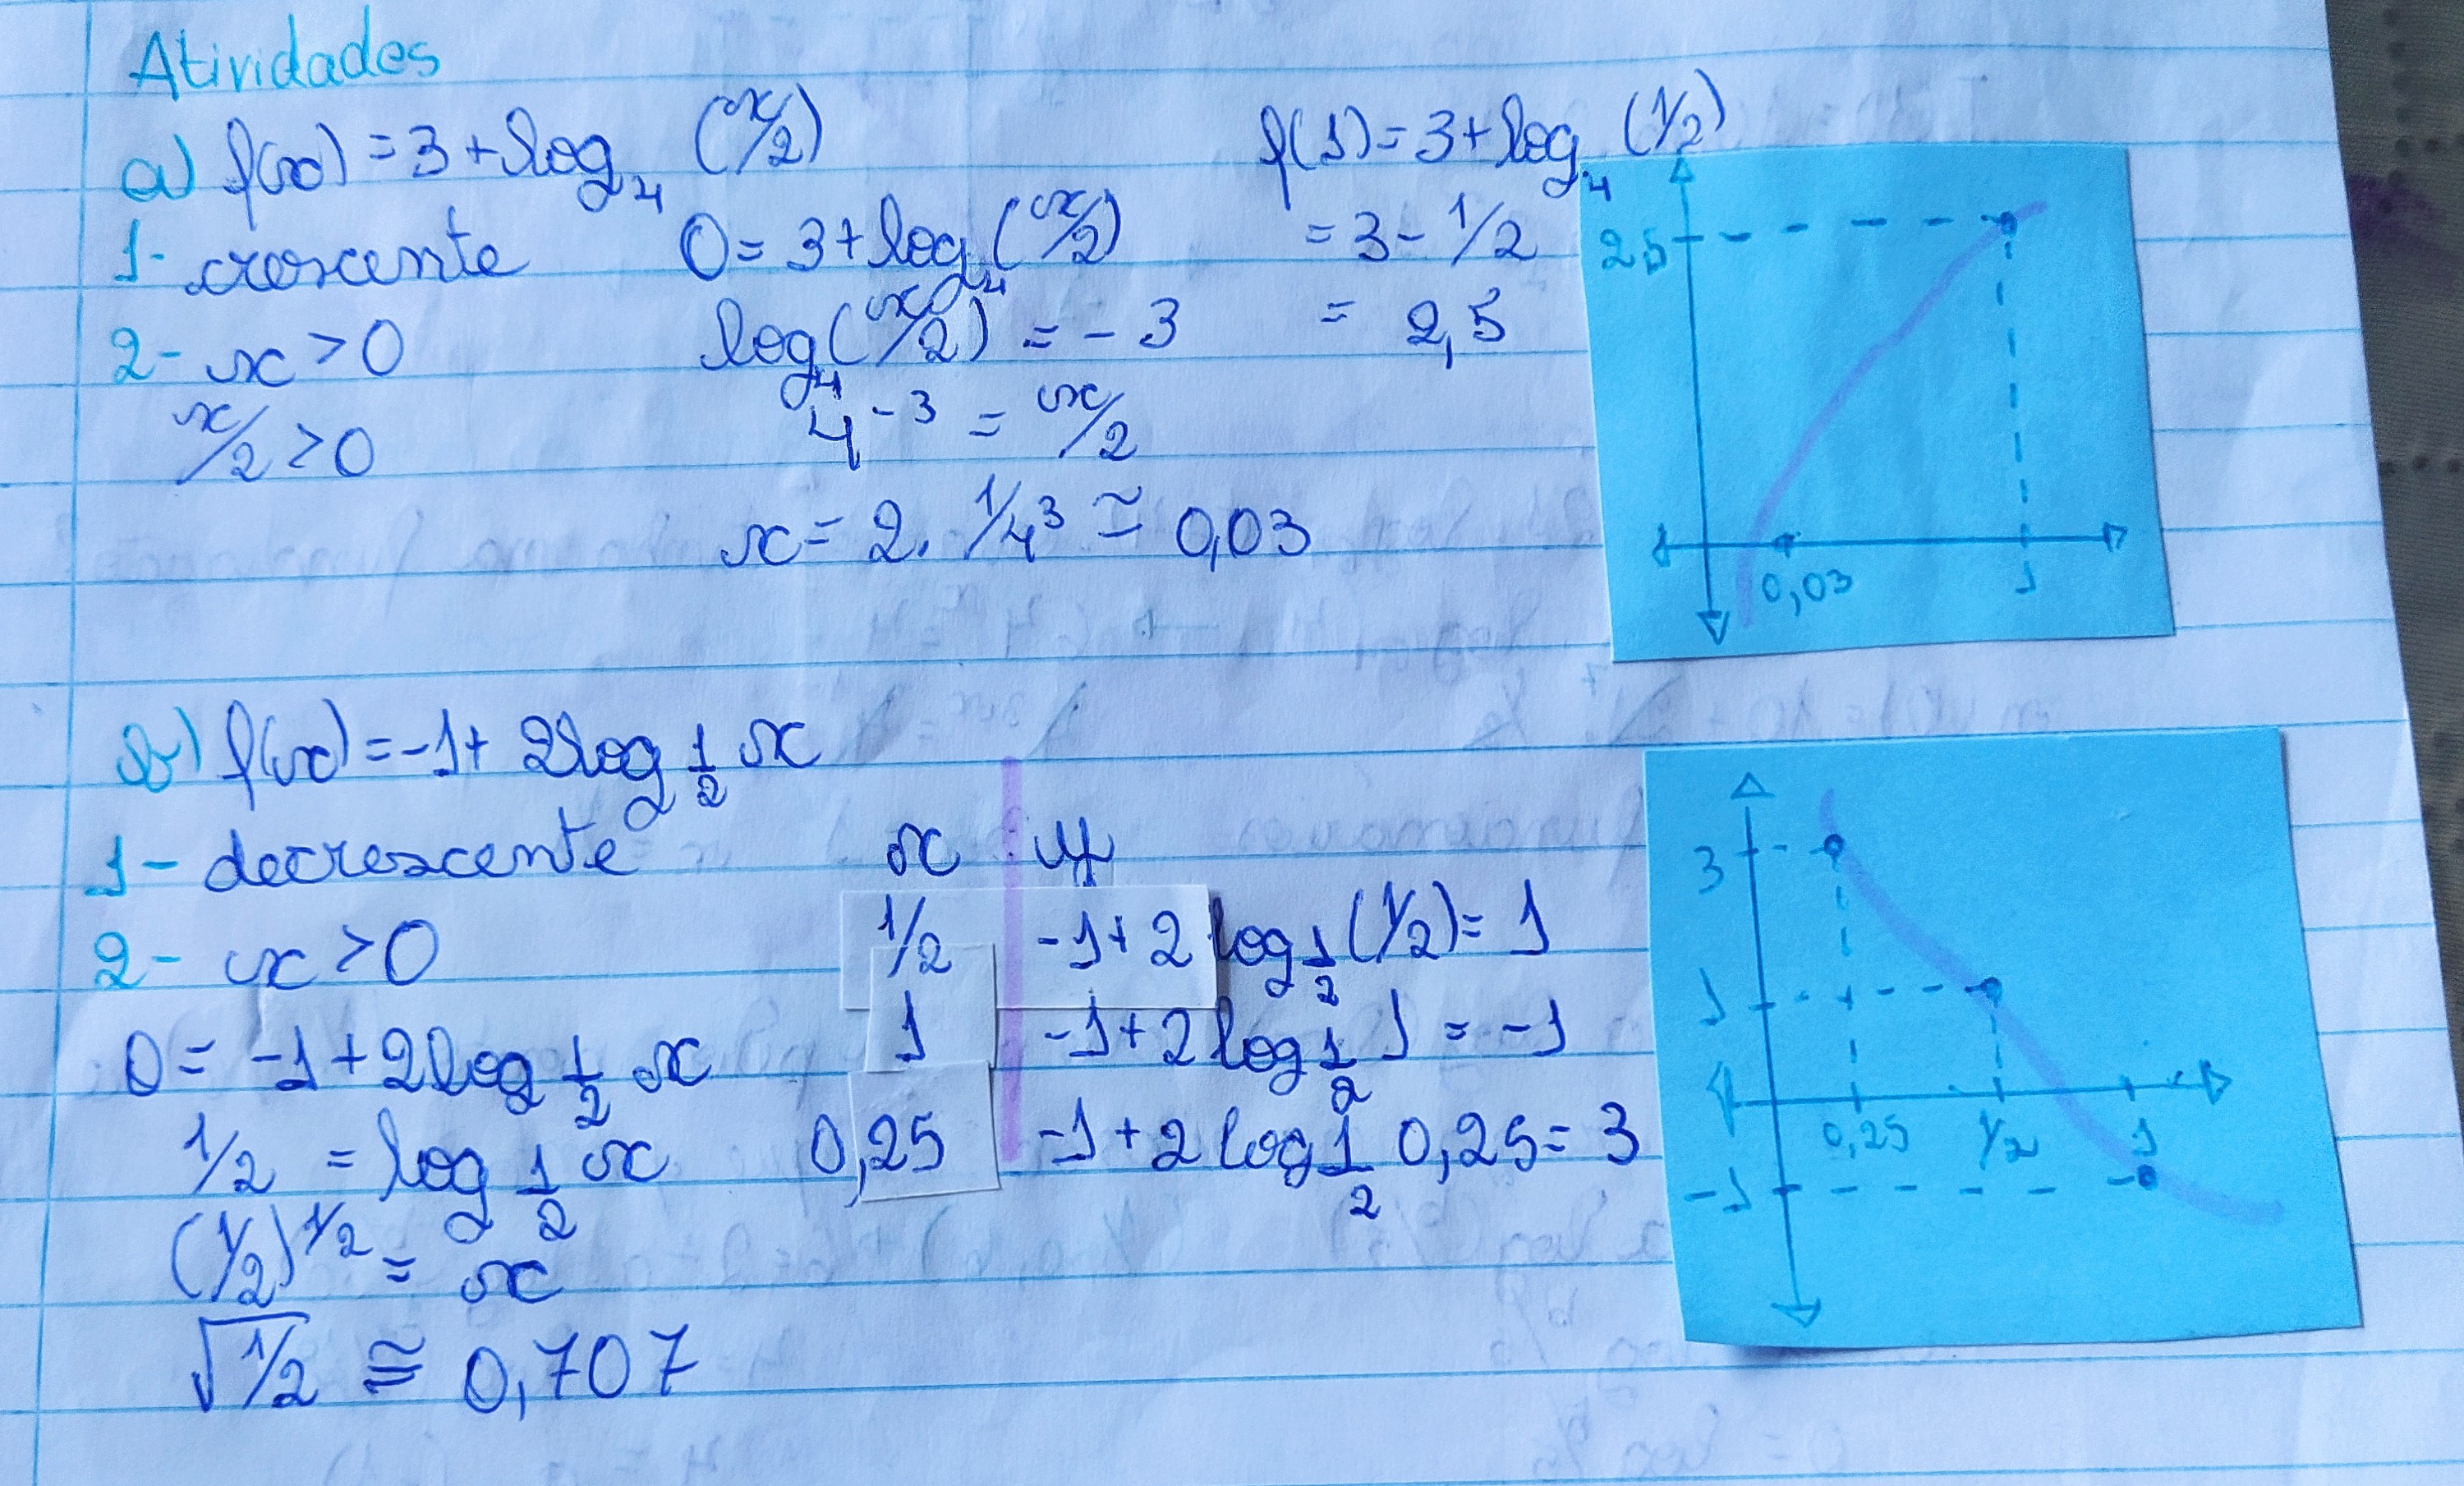 Atividades
a) f(x) = 3 + log₄ (x/2)
1- crescente
2- x > 0
x/2 > 0
0 = 3 + log₄ (x/2)
log₄ (x/2) = -3
4⁻³ = x/2
x = 2 . 1/4³ ≅ 0,03
f(1) = 3 + log₄ (1/2)
= 3 - 1/2
= 2,5
2,5
0,03 1
b) f(x) = -1 + 2log 1/2 x
1- decrescente
2- x > 0
0 = -1 + 2log 1/2 x
1/2 = log 1/2 x
(1/2)^1/2 = x
√1/2 ≅ 0,707
x y
1/2 -1 + 2 log 1/2 (1/2) = 1
1 -1 + 2 log 1/2 1 = -1
0,25 -1 + 2 log 1/2 0,25 = 3
3
1
0,25 1/2 1
-1